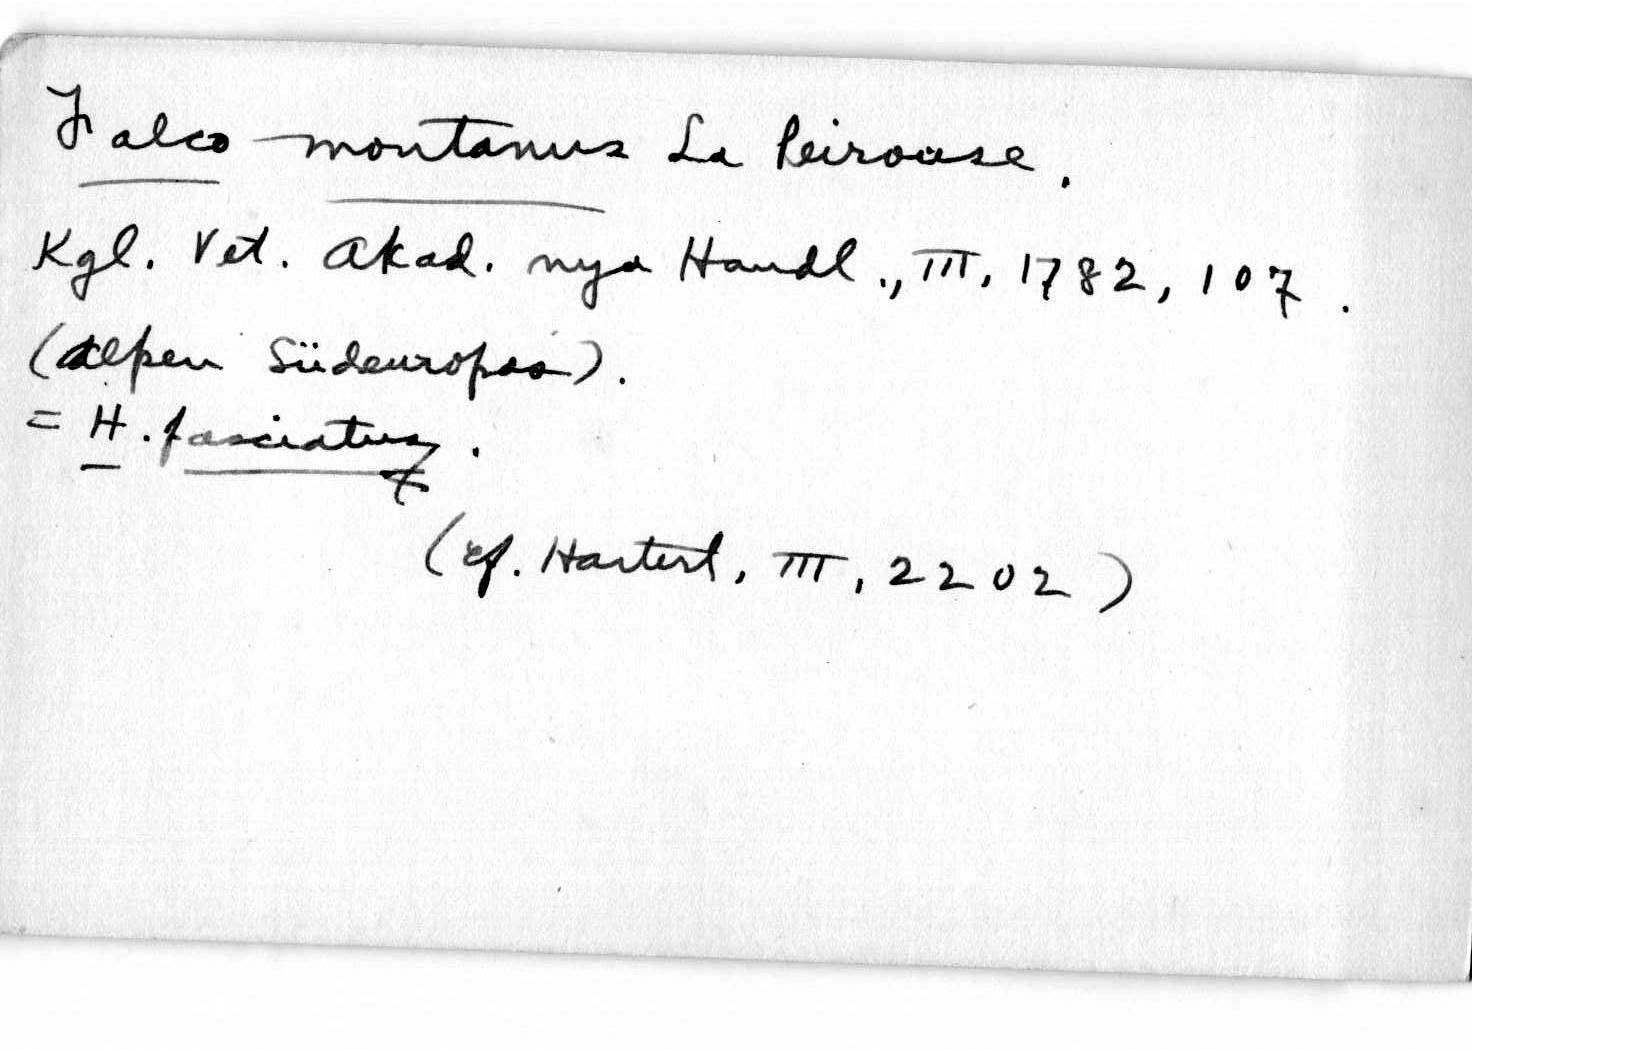 Falco montanus La Peirouse.
Kgl. Vet. Akad. nya Handl., III, 1782, 107.
(Alpen Südeuropas).
= H. fasciatus.
(cf. Hartert, III, 2202)